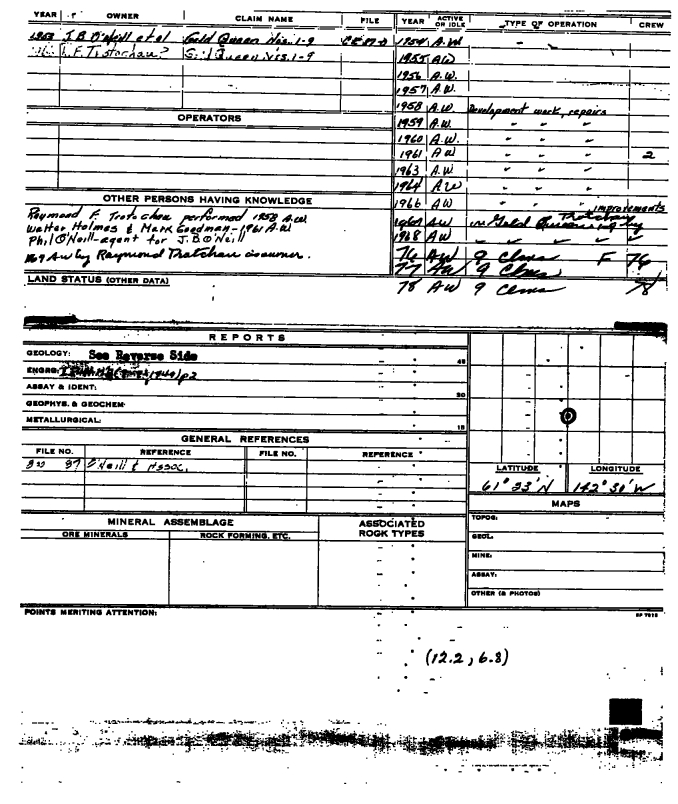 YEAR OWNER CLAIM NAME FILE YEAR ACTIVE OR IDLE TYPE OF OPERATION CREW
1953 J.B O'Neill et al Gold Queen Nos. 1-9 1954 A.W
Gold Queen Nos. 1-9 1955 AW
1956 A.W.
1957 A.W.
1958 A.W. Development work, repairs
OPERATORS 1959 A.W. " " "
1960 A.W. " " "
1961 AW " " " 2
1963 A.W " " "
1964 AW " " "
OTHER PERSONS HAVING KNOWLEDGE 1966 AW improvements
Raymond F. Trotochau performed 1958 A.W. AW on Gold
Walter Holmes & Mark Goodman - 1961 A.W 1968 AW " " " "
Phil O'Neill - agent for J.B O'Neill
AW by Raymond is owner. 76 AW 9 Clms F 76
77 AW 9 Clms
LAND STATUS (OTHER DATA)
78 AW 9 Clms 78
REPORTS
GEOLOGY: See Reverse Side
45
ENGRG: p2
ASSAY & IDENT:
30
GEOPHYS. & GEOCHEM:
METALLURGICAL:
15
GENERAL REFERENCES
FILE NO. REFERENCE FILE NO. REFERENCE
87 O'Neill & Assoc.
LATITUDE LONGITUDE
61° 33' N 142° 30' W
MAPS
MINERAL ASSEMBLAGE ASSOCIATED ROCK TYPES
ORE MINERALS ROCK FORMING, ETC.
TOPOG:
GEOL:
MINE:
ASSAY:
OTHER (& PHOTOS)
POINTS MERITING ATTENTION:
(12.2, 6.8)